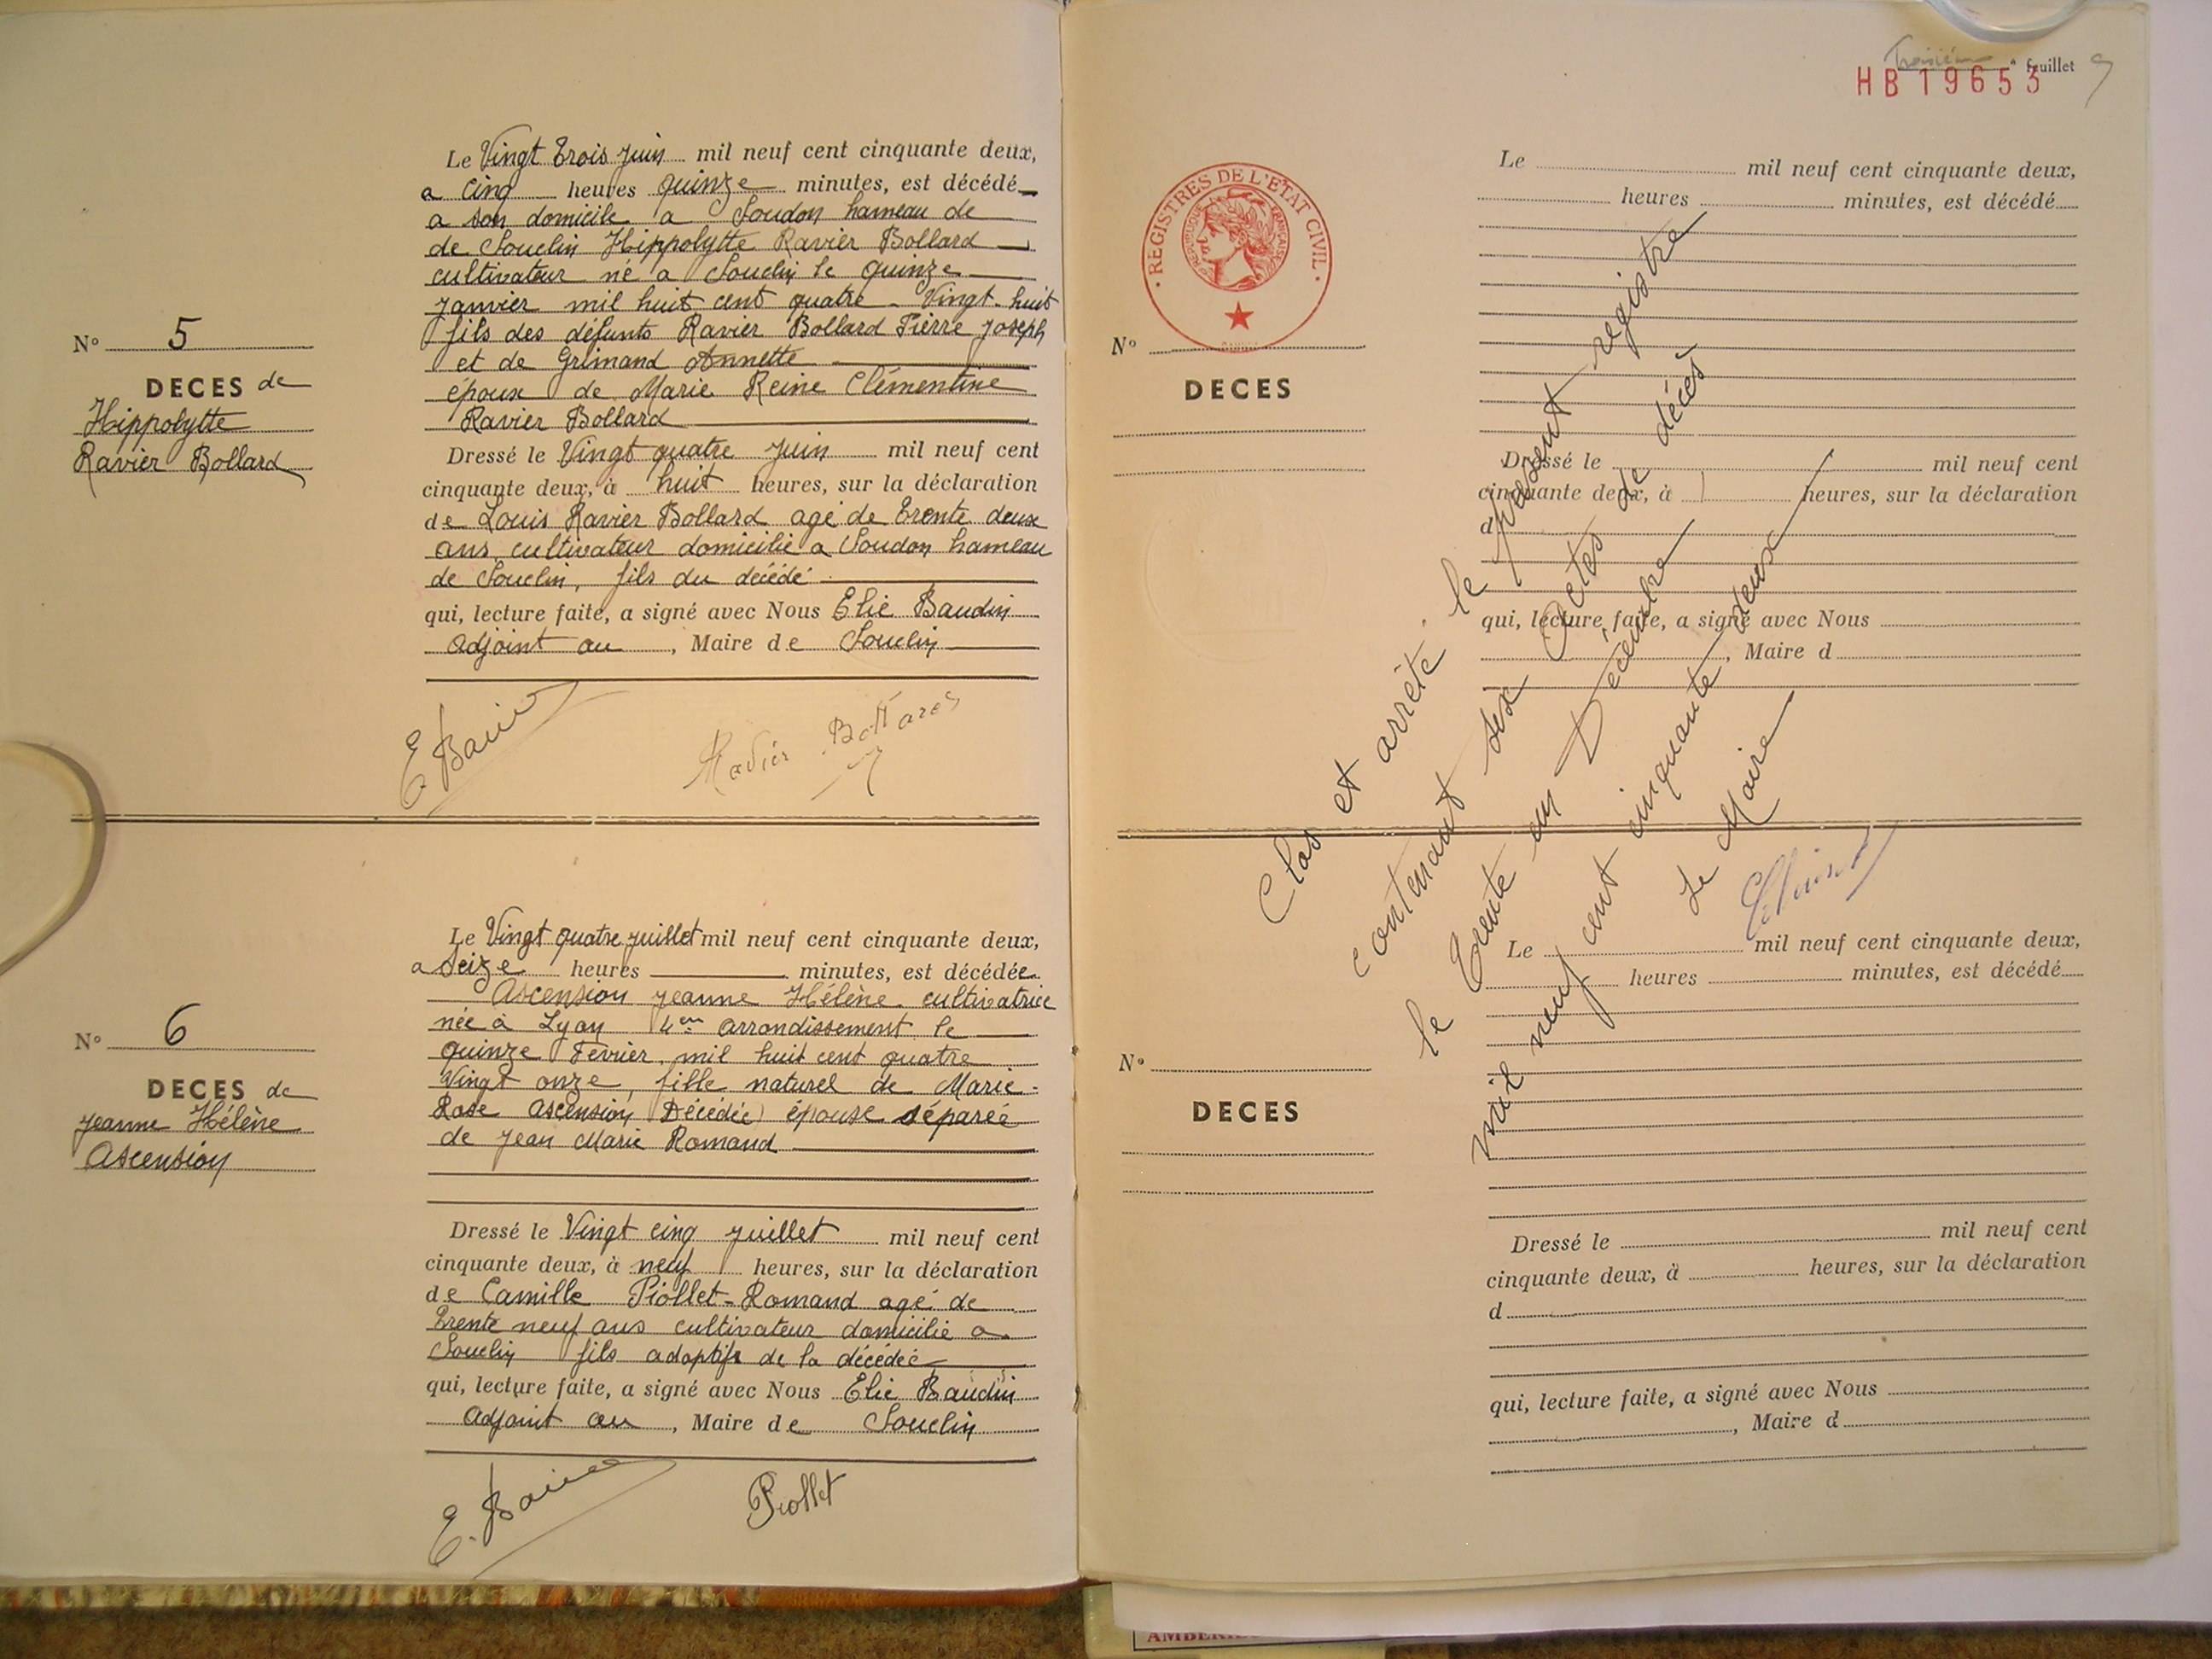 N° 5
DECES de
Hippolytte
Ravier Bollard
Le Vingt trois juin mil neuf cent cinquante deux,
a cinq heures quinze minutes, est décédé
a son domicile a Soudon hameau de
de Souclin Hippolytte Ravier Bollard
cultivateur né a Souclin le quinze
janvier mil huit cent quatre - Vingt - huit
fils des défunts Ravier Bollard Pierre Joseph
et de Grimand Annette
époux de Marie Reine Clémentine
Ravier Bollard
Dressé le Vingt quatre juin mil neuf cent
cinquante deux, à huit heures, sur la déclaration
de Louis Ravier Bollard agé de trente deux
ans cultivateur domicilié a Soudon hameau
de Souclin, fils du décédé
qui, lecture faite, a signé avec Nous Elie Baudin
adjoint au , Maire de Souclin
Ravier Bollard
N° 6
DECES de
Jeanne Hélène
Ascension
Le Vingt quatre juillet mil neuf cent cinquante deux,
a seize heures minutes, est décédée
Ascension Jeanne Hélène cultivatrice
née à Lyon 4em arrondissement le
quinze Février mil huit cent quatre
Vingt onze, fille naturel de Marie-
Rose Ascension (Décédée) épouse séparée
de Jean Marie Romand
Dressé le Vingt cinq juillet mil neuf cent
cinquante deux, à neuf heures, sur la déclaration
de Camille Piollet-Romand agé de
trente neuf ans cultivateur domicilié a
Souclin fils adoptif de la décédée
qui, lecture faite, a signé avec Nous Elie Baudin
adjoint au , Maire de Souclin
Piollet
Troisième feuillet 9
HB 19653
REGISTRES DE L'ETAT CIVIL
REPUBLIQUE FRANÇAISE
N°
DECES
Le mil neuf cent cinquante deux,
heures minutes, est décédé
Dressé le mil neuf cent
cinquante deux, à heures, sur la déclaration
d
qui, lecture faite, a signé avec Nous
, Maire d
Clos et arrêté le présent registre
contenant six actes de décès
le trente un Décembre
mil neuf cent cinquante deux
Le Maire
N°
DECES
Le mil neuf cent cinquante deux,
heures minutes, est décédé
Dressé le mil neuf cent
cinquante deux, à heures, sur la déclaration
d
qui, lecture faite, a signé avec Nous
, Maire d